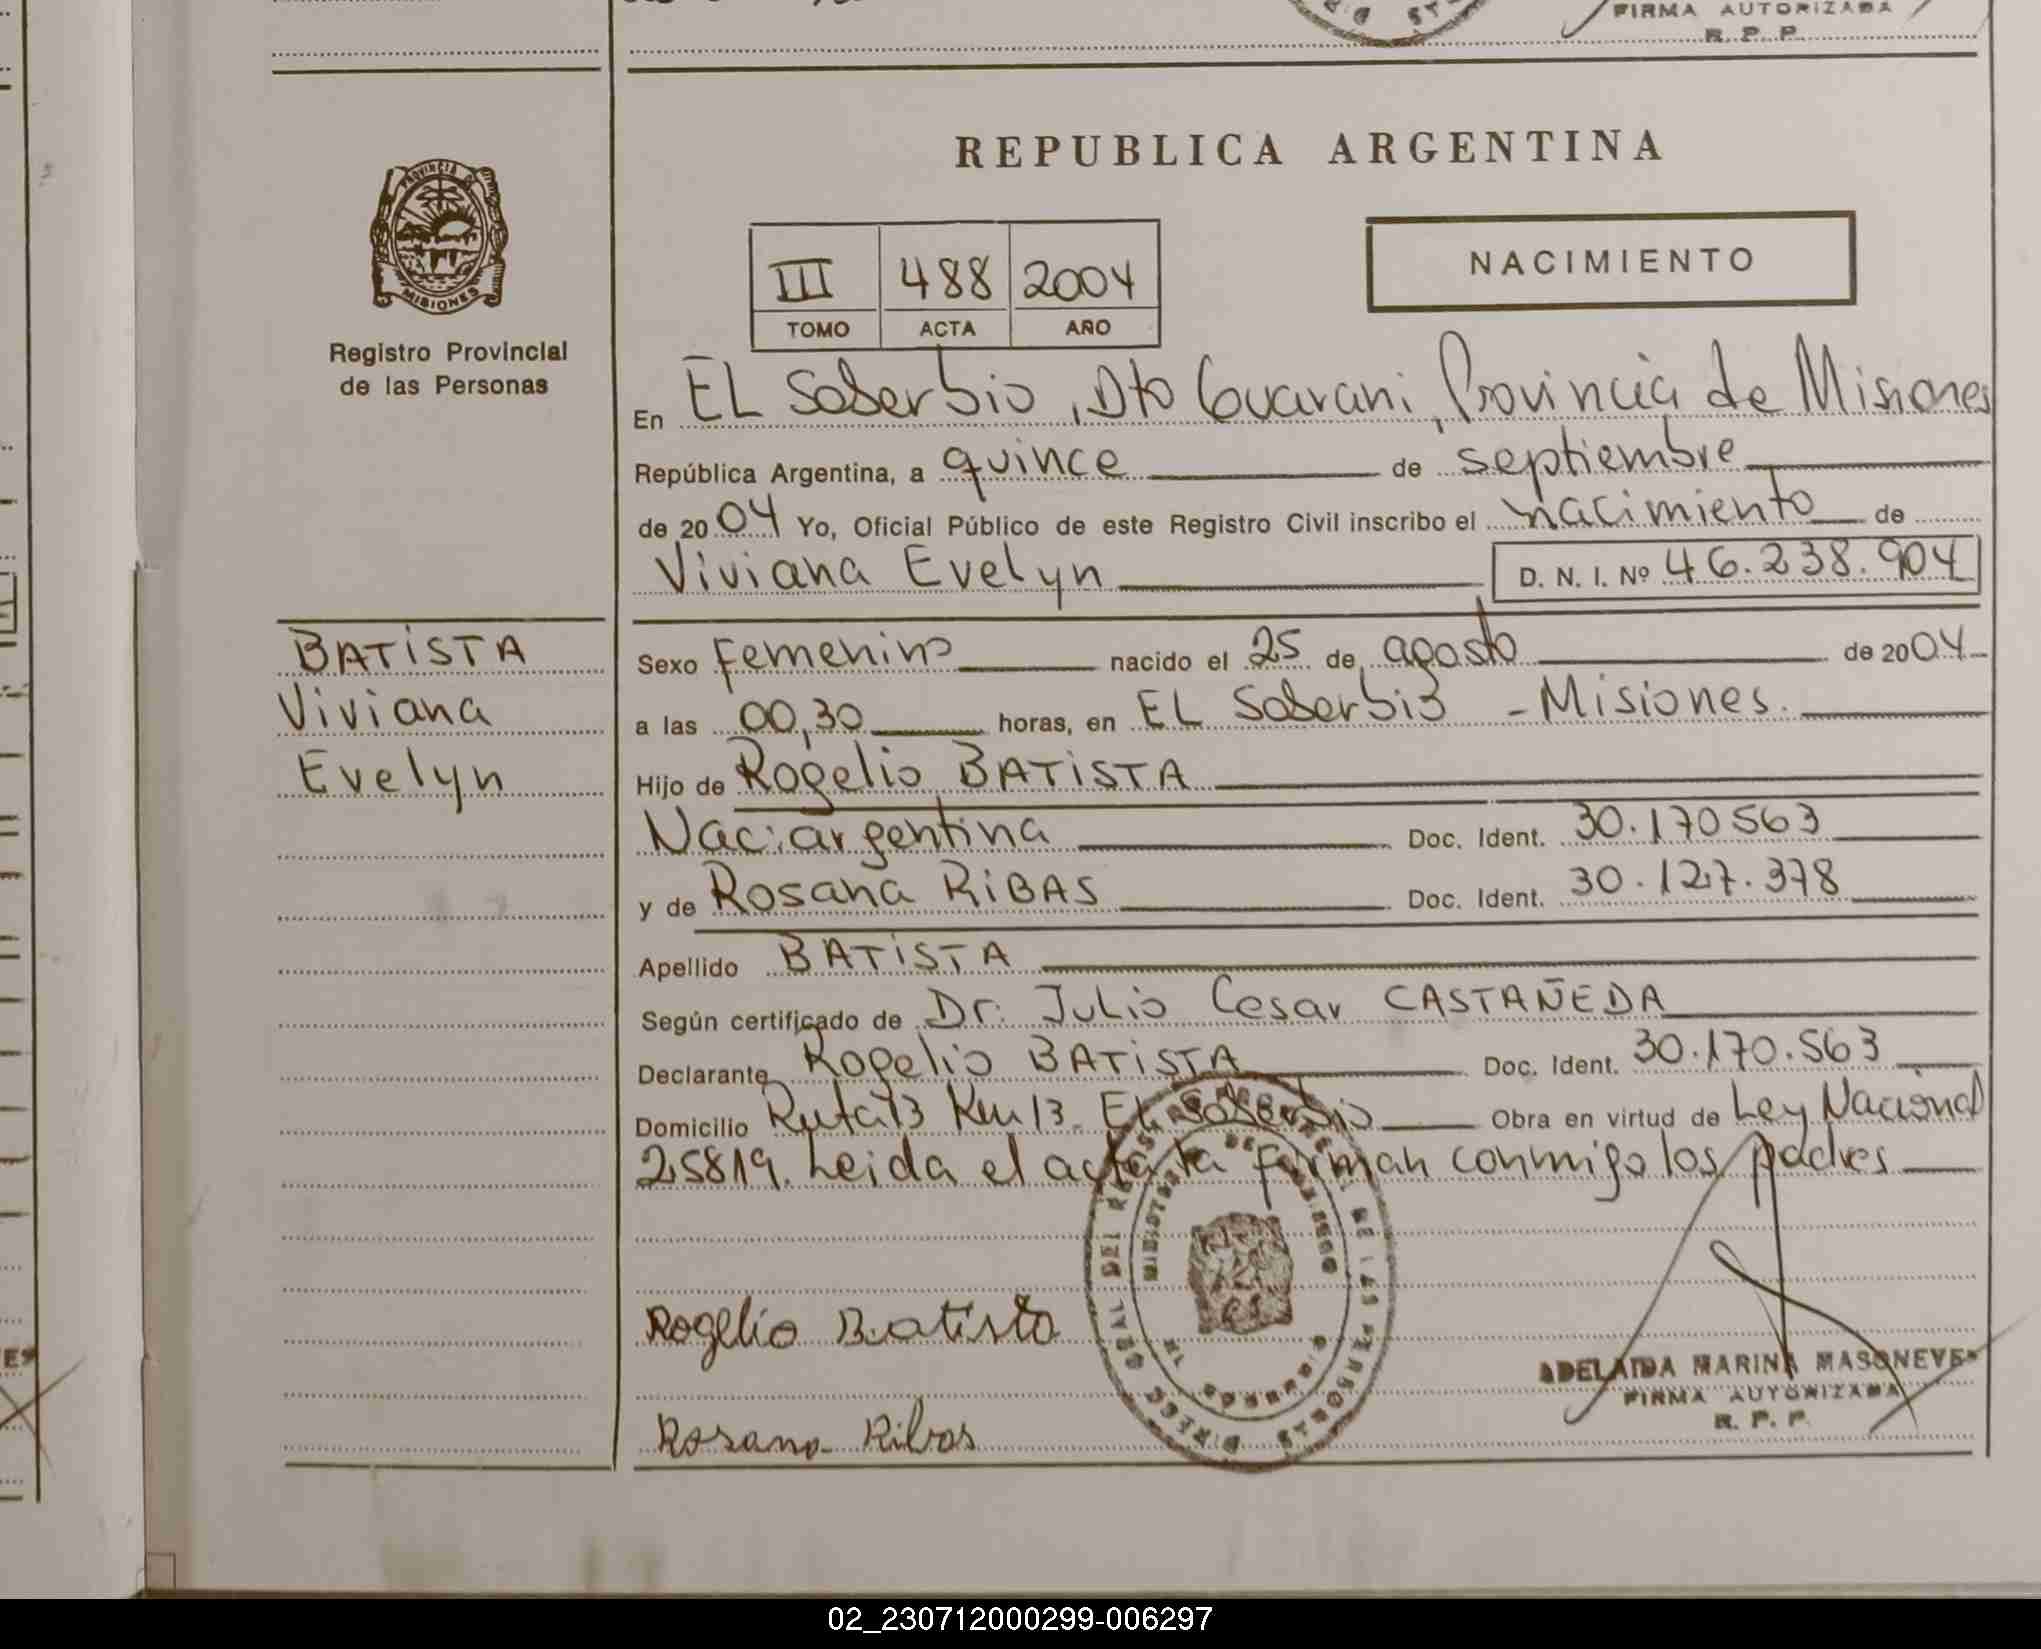 FIRMA AUTORIZADA
R. P. P.
PROVINCIA DE
MISIONES
Registro Provincial
de las Personas
BATISTA
Viviana
Evelyn
REPUBLICA ARGENTINA
III 488 2004
TOMO ACTA AÑO
NACIMIENTO
En EL Soberbio, Dto Guarani, Provincia de Misiones
República Argentina, a quince de septiembre
de 2004 Yo, Oficial Público de este Registro Civil inscribo el nacimiento de
Viviana Evelyn D. N. I. Nº 46.238.904
Sexo Femenino nacido el 25 de agosto de 2004
a las 00,30 horas, en EL Soberbio - Misiones.
Hijo de Rogelio BATISTA
Nac: argentina Doc. Ident. 30.170563
y de Rosana RIBAS Doc. Ident. 30.127.378
Apellido BATISTA
Según certificado de Dr. Julio Cesar CASTAÑEDA
Declarante Rogelio BATISTA Doc. Ident. 30.170.563
Domicilio Ruta 13 Km 13. EL Soberbio Obra en virtud de Ley Nacional
25819. Leida el acta la firman conmigo los padres
Rogelio Batista
Rosana Ribas
ADELAIDA MARINA MASONEVES
FIRMA AUTORIZADA
R. P. P.
02_230712000299-006297